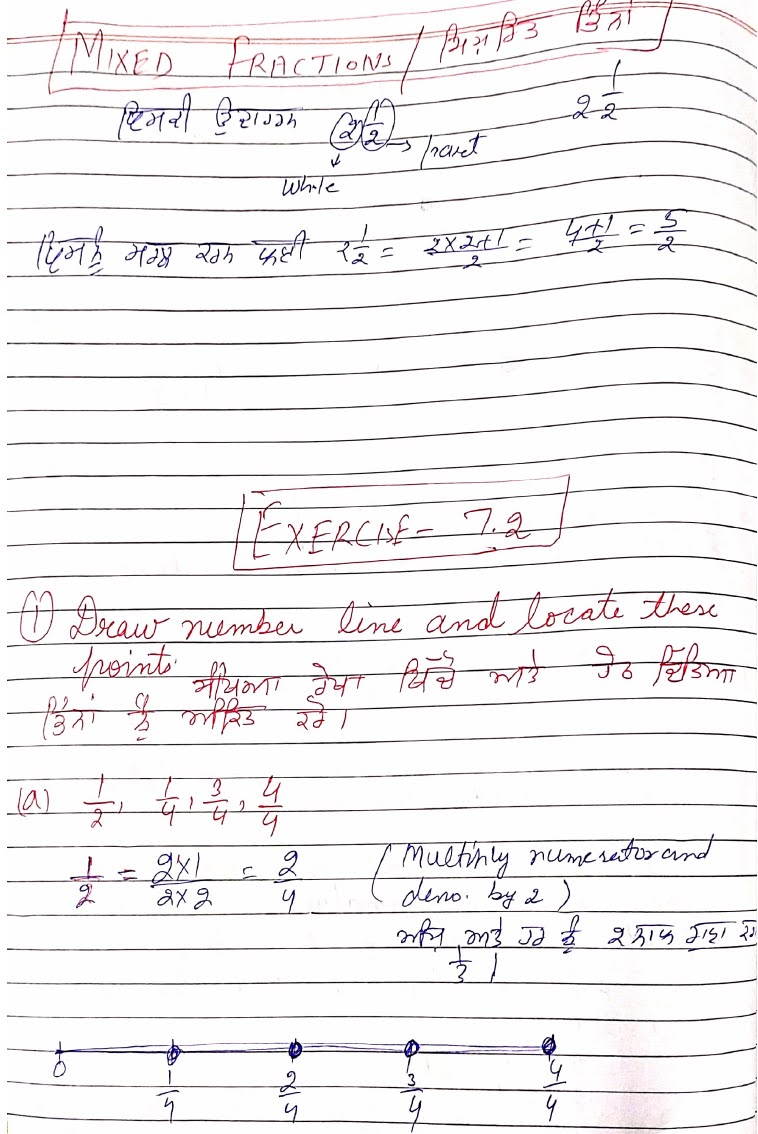 MIXED FRACTIONS / ਮਿਸ਼ਰਿਤ ਭਿੰਨਾਂ
ਇਸਦੀ ਉਦਾਹਰਨ 2 1/2 → part 2 1/2
↓
While
2 1/2 = 2×2+1/2 = 4+1/2 = 5/2
EXERCISE - 7.2
① Draw number line and locate these
points. ਸੰਖਿਆ ਰੇਖਾ ਖਿੱਚੋ ਅਤੇ ਹੇਠ ਦਿੱਤੀਆਂ
ਭਿੰਨਾਂ ਨੂੰ ਅੰਕਿਤ ਕਰੋ।
(a) 1/2, 1/4, 3/4, 4/4
1/2 = 2×1/2×2 = 2/4 (Multiply numerator and
deno. by 2)
ਅੰਸ਼ ਅਤੇ ਹਰ ਨੂੰ 2 ਨਾਲ ਗੁਣਾ
0 1/4 2/4 3/4 4/4